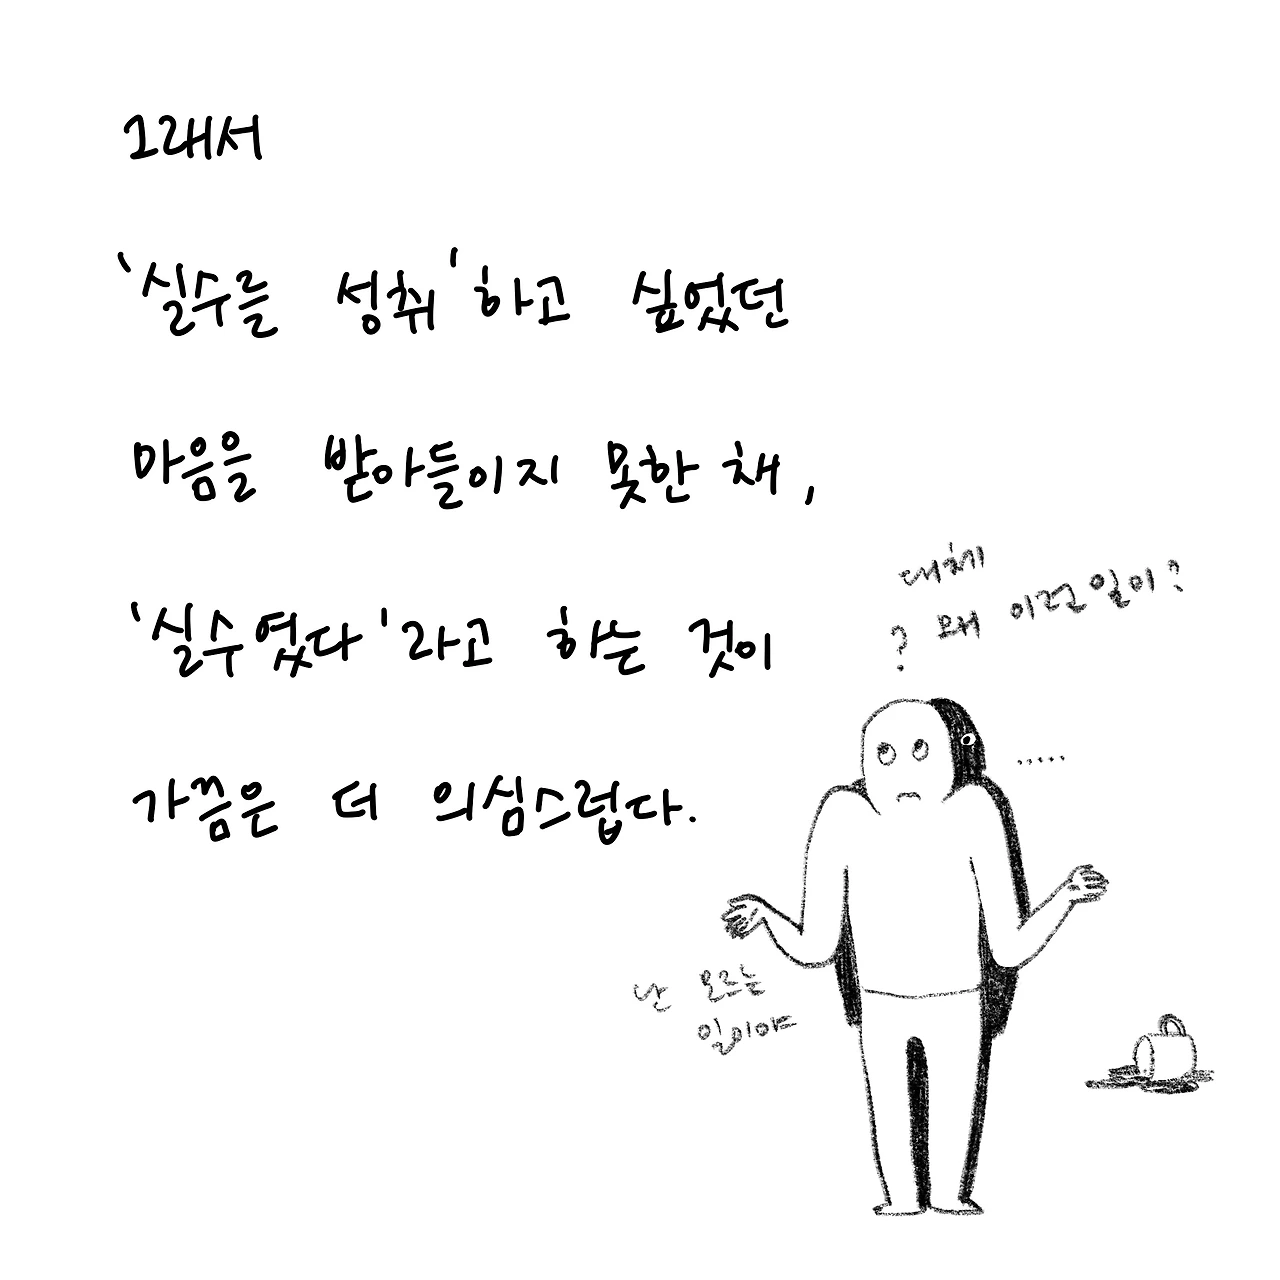 그래서
'실수를 성취'하고 싶었던
마음을 받아들이지 못한 채,
'실수였다'라고 하는 것이
가끔은 더 의심스럽다.
대체
? 왜 이런일이?
.....
난 모르는
일이야